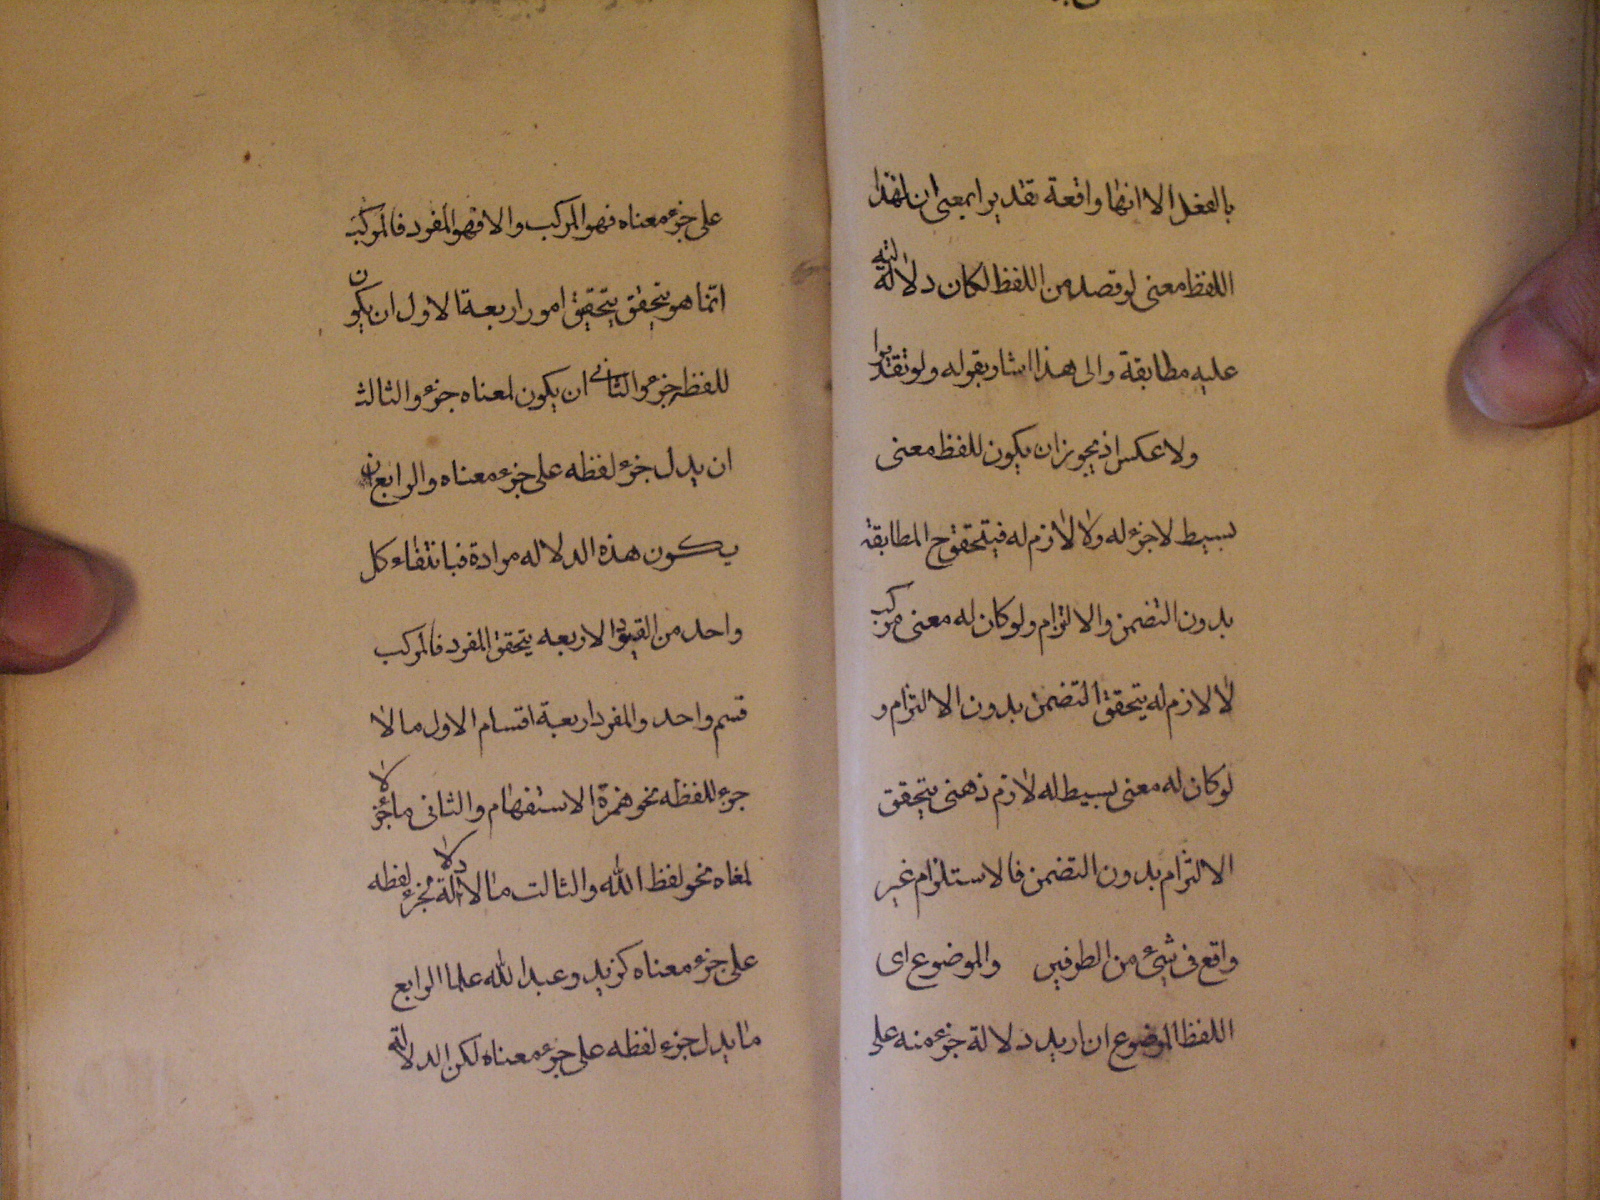 بالفعل الا انها واقعة تقديرا بمعنى ان لهذا
اللفظ معنى لو قصد من اللفظ لكان دلالته
عليه مطابقة والى هذا اشار بقوله ولو تقديرا
ولا عكس اذ يجوز ان يكون للفظ معنى
بسيط لا جزء له ولا لازم له فيتحقق ح المطابقة
بدون التضمن والالتزام ولو كان له معنى مركب
لا لازم له يتحقق التضمن بدون الالتزام و
لو كان له معنى بسيط له لازم ذهنى يتحقق
الالتزام بدون التضمن فالاستلزام غير
واقع فى شىء من الطرفين والموضوع اى
اللفظ الموضوع ان اريد دلالة جزء منه على
على جزء معناه فهو المركب والا فهو المفرد فالمركب
انما هو يتحقق بتحقيق امور اربعة الاول ان يكون
للفظ جزء والثانى ان يكون لمعناه جزء والثالث
ان يدل جزء لفظه على جزء معناه والرابع ان
يكون هذه الدلاله مرادة فبانتفاء كل
واحد من القيود الاربعه يتحقق المفرد فالمركب
قسم واحد والمفرد اربعة اقسام الاول ما لا
جزء للفظه نحو همزة الاستفهام والثانى ما لا جزء
لمعناه نحو لفظ الله والثالث ما لا دلالة لجزء لفظه
على جزء معناه كزيد وعبد الله علما الرابع
ما يدل جزء لفظه على جزء معناه لكن الدلالة